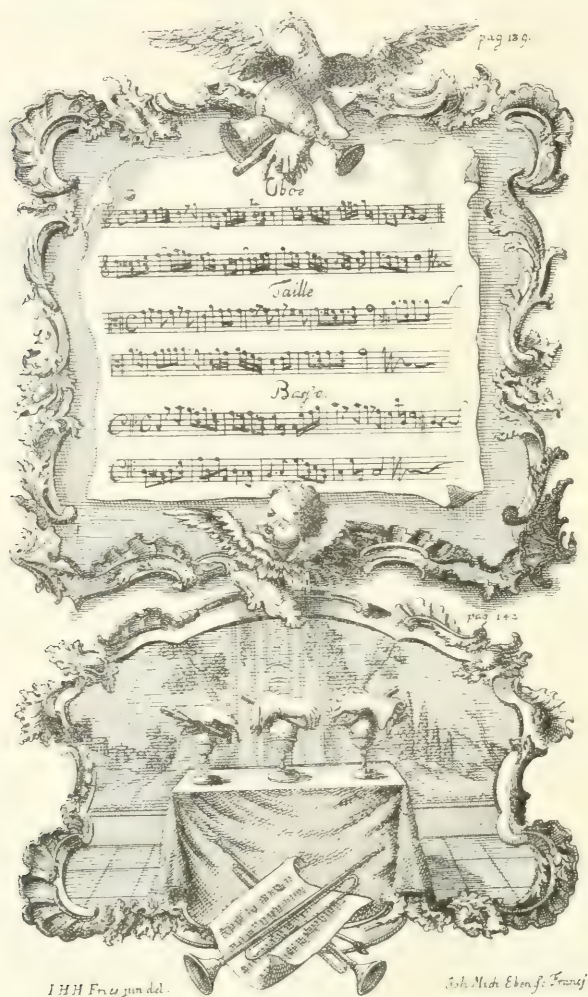 pag 139.
Oboe
Taille
Basso.
pag 142
I H H Fries jun del.
Joh Mich Eben sc: Francf